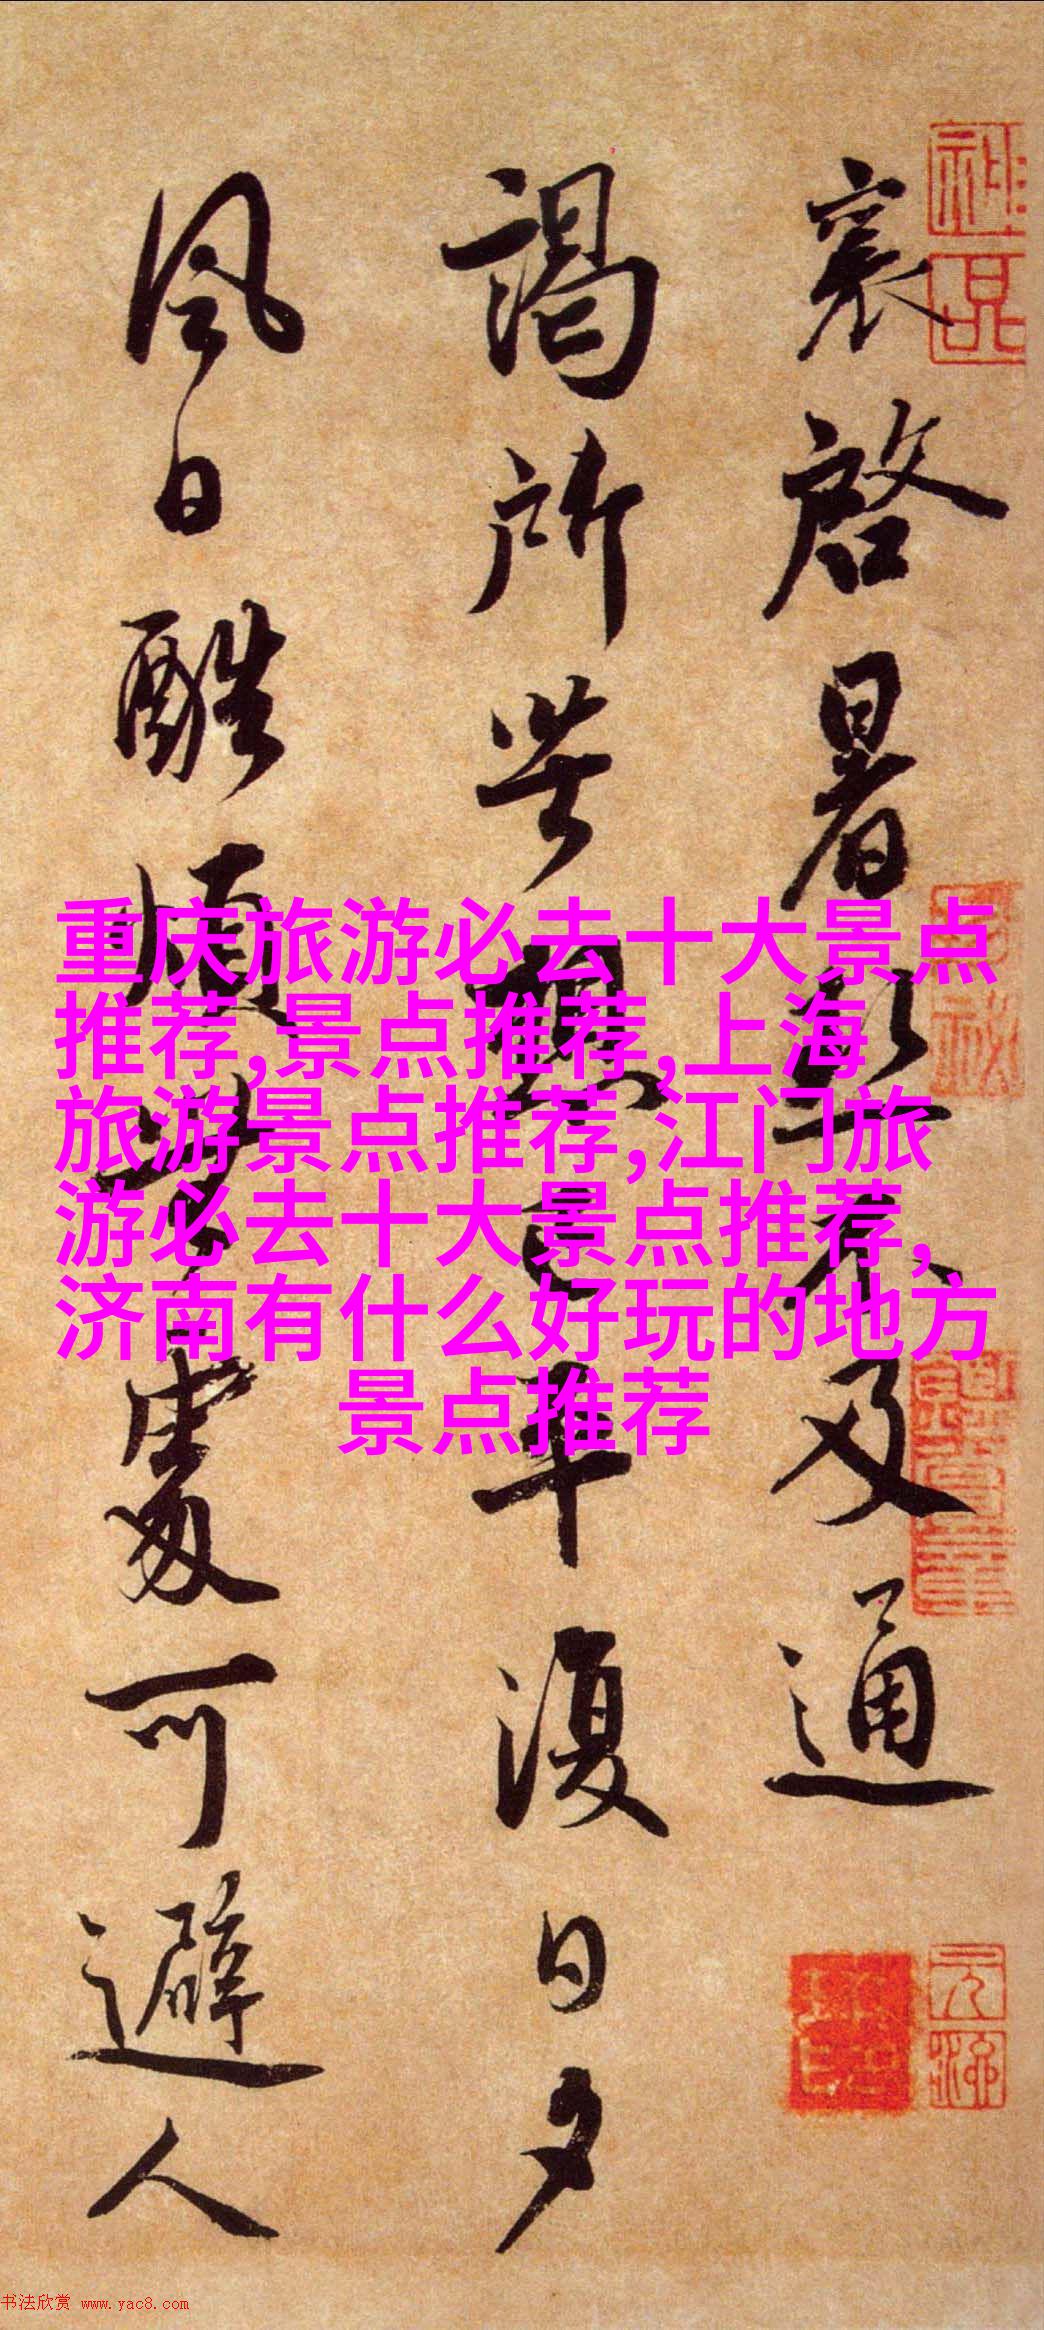 襄啓暑热不及通
謁所苦想已平復日夕
風日酷煩無處可避人
重庆旅游必去十大景点
推荐,景点推荐,上海
旅游景点推荐,江门旅
游必去十大景点推荐,
济南有什么好玩的地方
景点推荐
书法欣赏 www.yac8.com